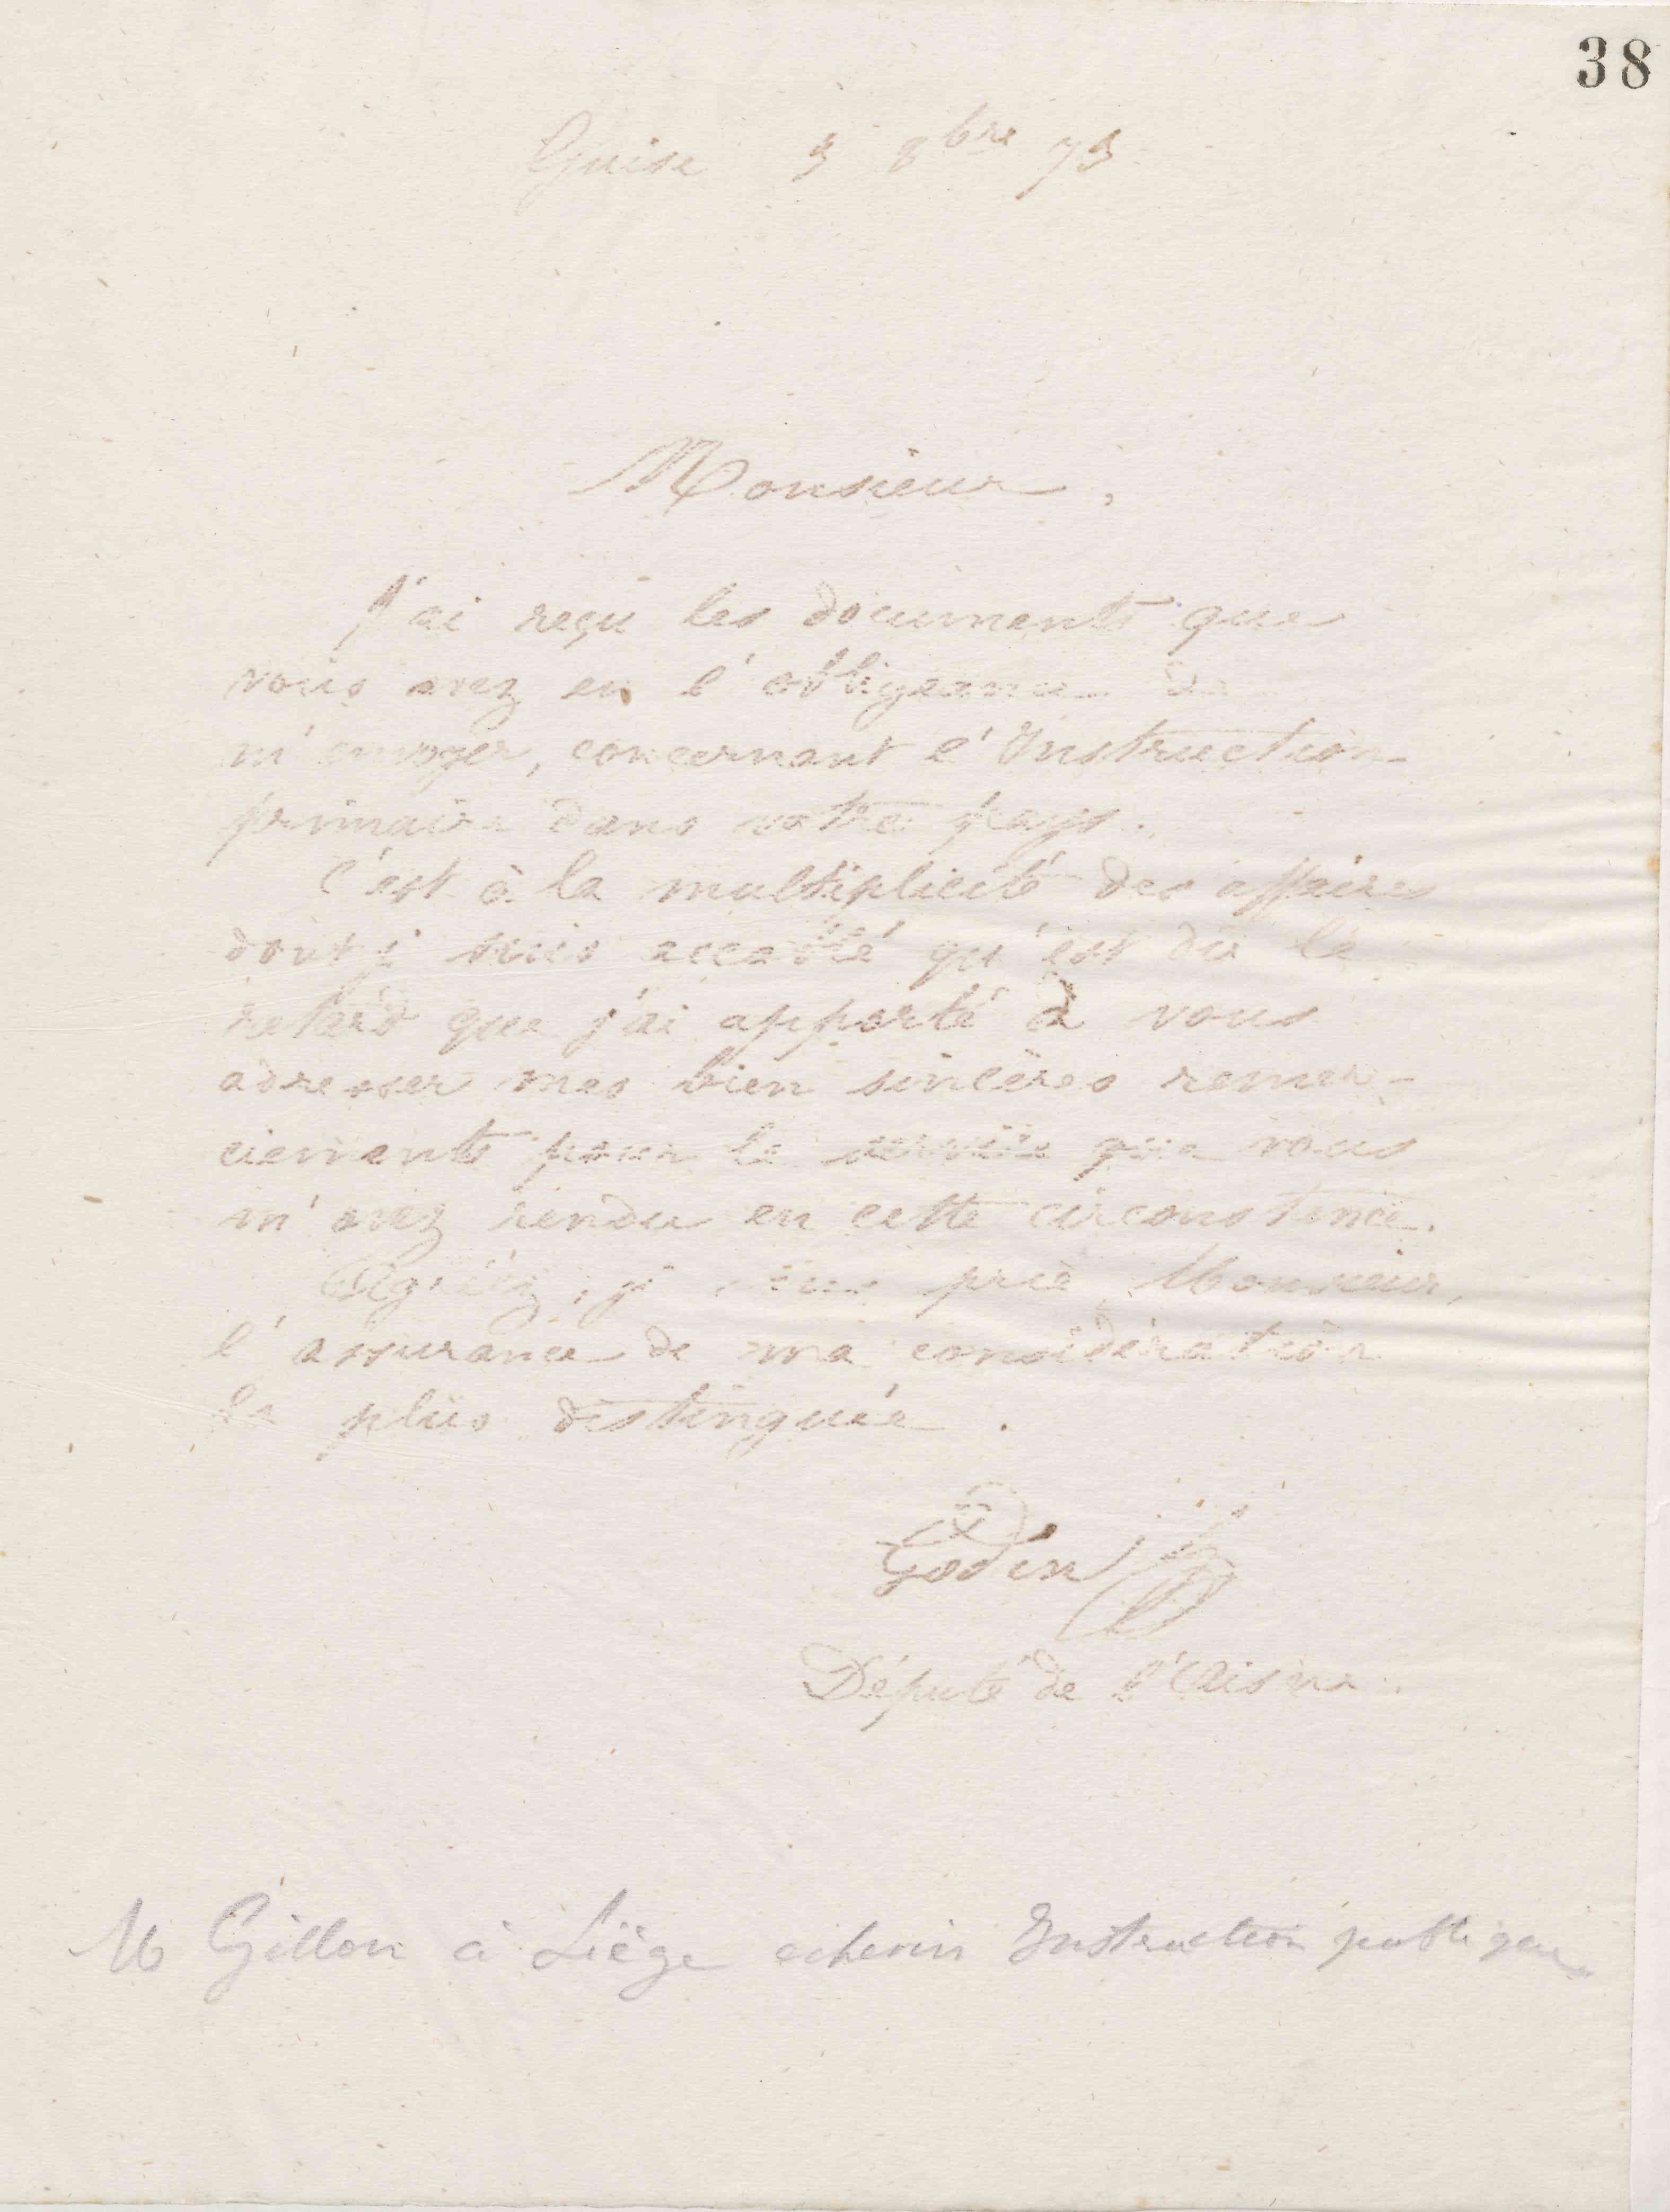 38
Guise 3 8bre 73
Monsieur,
J'ai reçu les documents que
vous avez eu l'obligeance de
m'envoyer, concernant l'Instruction
primaire dans votre pays.
C'est à la multiplicité des affaires
dont je suis accablé qu'est dû le
retard que j'ai apporté à vous
adresser mes bien sincères remer-
ciements pour le service que vous
m'avez rendu en cette circonstance.
Agréez, je vous prie, Monsieur,
l'assurance de ma considération
la plus distinguée.
Godin
Député de l'Aisne
M Gillon à Liège echevin Instruction publique